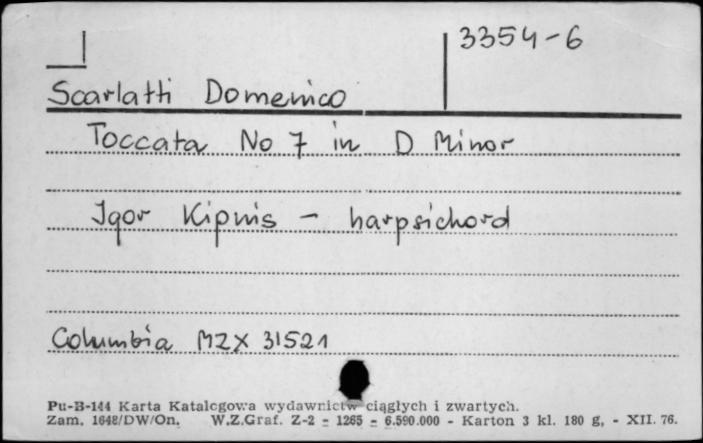 3354-6
Scarlatti Domenico
Toccata No 7 in D Minor
Igor Kipnis - harpsichord
Columbia MZX 31521
Pu-B-144 Karta Katalogowa wydawnictw ciągłych i zwartych.
Zam. 1648/DW/On. W.Z.Graf. Z-2 - 1265 - 6.590.000 - Karton 3 kl. 180 g. - XII. 76.